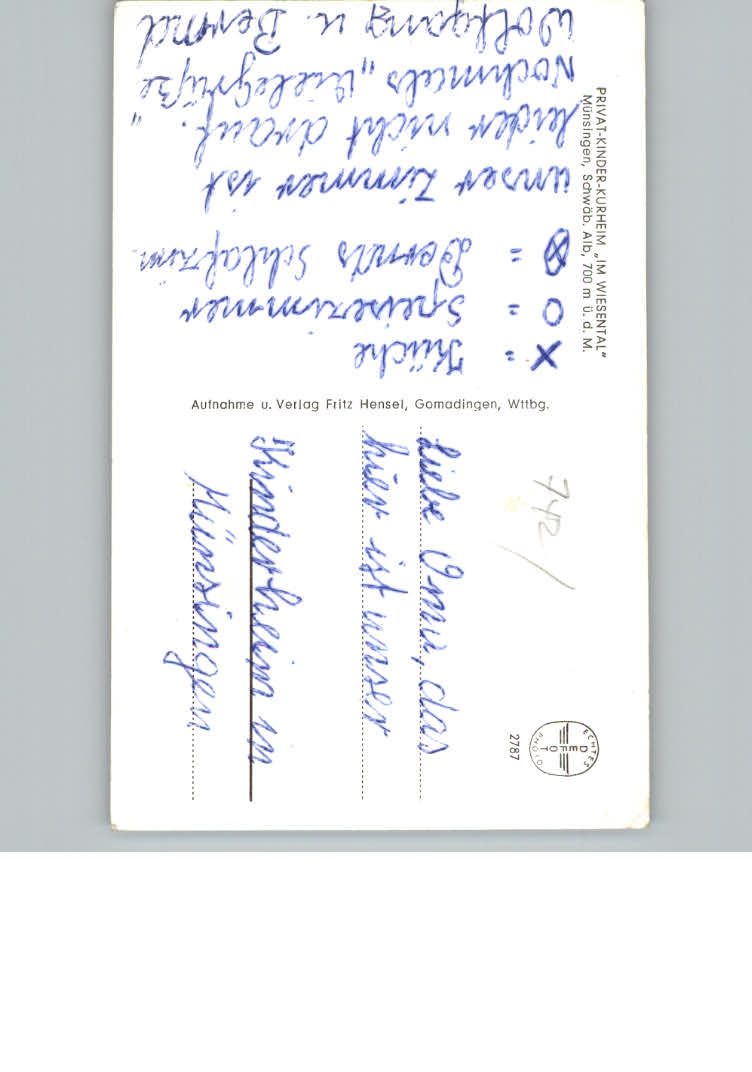 PRIVAT-KINDER-KURHEIM „IM WIESENTAL"
Münsingen, Schwäb. Alb, 700 m ü. d. M.
X = Küche
O = Speisezimmer
⊗ = Bernds Schlafzim.
unser Zimmer ist
leider nicht drauf.
Nochmals „Vielegrüße"
Wolfgang u. Bernd
Aufnahme u. Verlag Fritz Hensel, Gomadingen, Wttbg.
liebe Oma, das
hier ist unser
Kinderheim in
Münsingen
742/
ECHTES
DEFOT
PHOTO
2787